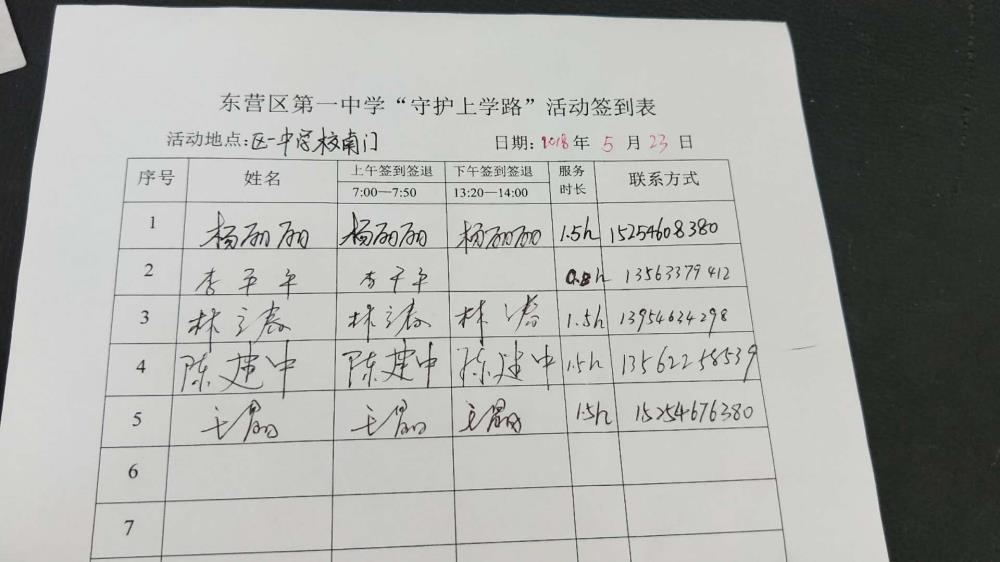 东营区第一中学“守护上学路”活动签到表
活动地点:区一中学校南门 日期: 2018年 5 月 23 日
序号 姓名 上午签到签退 7:00—7:50 下午签到签退 13:20—14:00 服务时长 联系方式
1 杨丽丽 杨丽丽 杨丽丽 1.5h 15254608380
2 李平平 李平平 0.8h 13563379412
3 林立春 林立春 林 春 1.5h 13954634298
4 陈建中 陈建中 陈建中 1.5h 13562258539
5 王 1.5h 15254676380
6
7